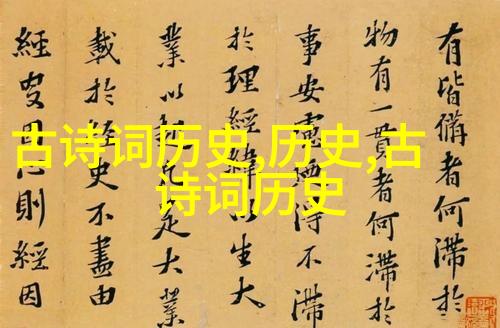 古诗词历史,历史,古
诗词历史
有皆備者何滯於
物有一貫者何滯於
事安慮得不滯
於理經緯生大
業以足大業
載於經史不盡由
經心則經因